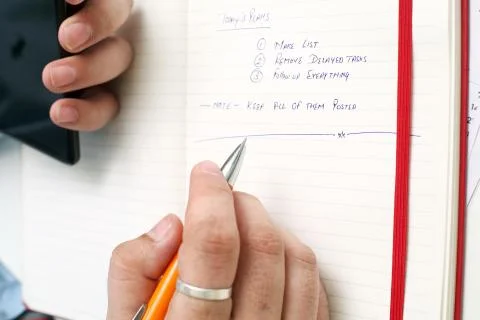 Today's Plans
① Make List
② Remove Delayed Tasks
③ Follow up Everything
— Note — Keep all of them Posted